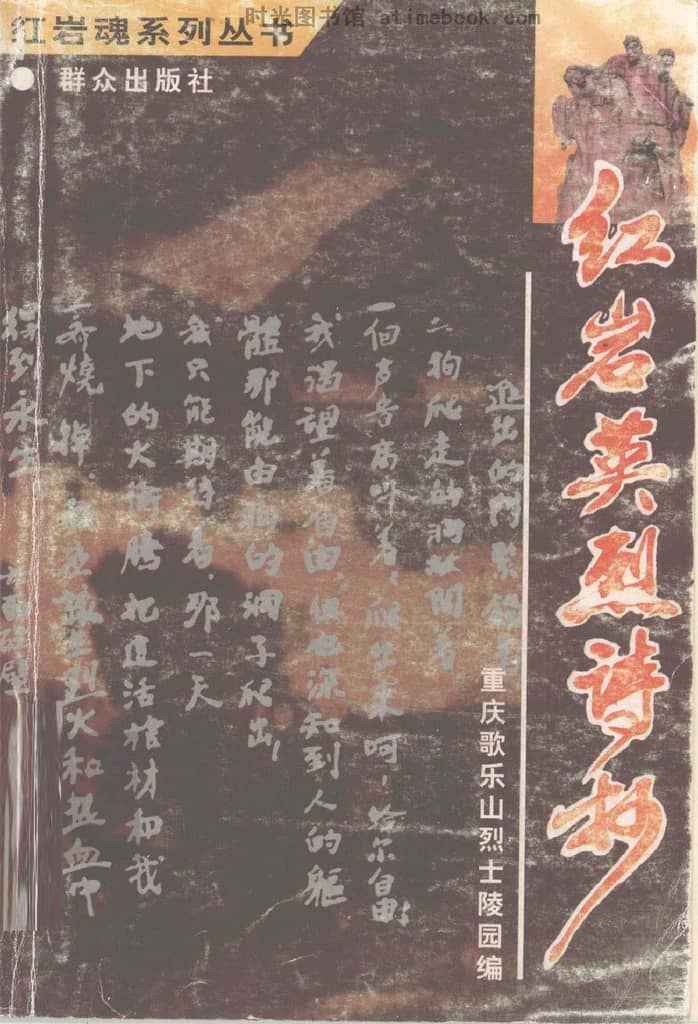 时光图书馆 atimebook.com
红岩魂系列丛书
群众出版社
红岩英烈诗抄
重庆歌乐山烈士陵园编
出的门紧锁着
狗爬走的洞敞开着
一个声音高叫着，爬出来呵，给尔自由！
我渴望着自由，但也深知到人的躯
體那能由狗的洞子爬出！
我只能期待着，那一天
地下的火冲腾，把这活棺材和我
一齐烧掉，
烈火和热血中
得到永生